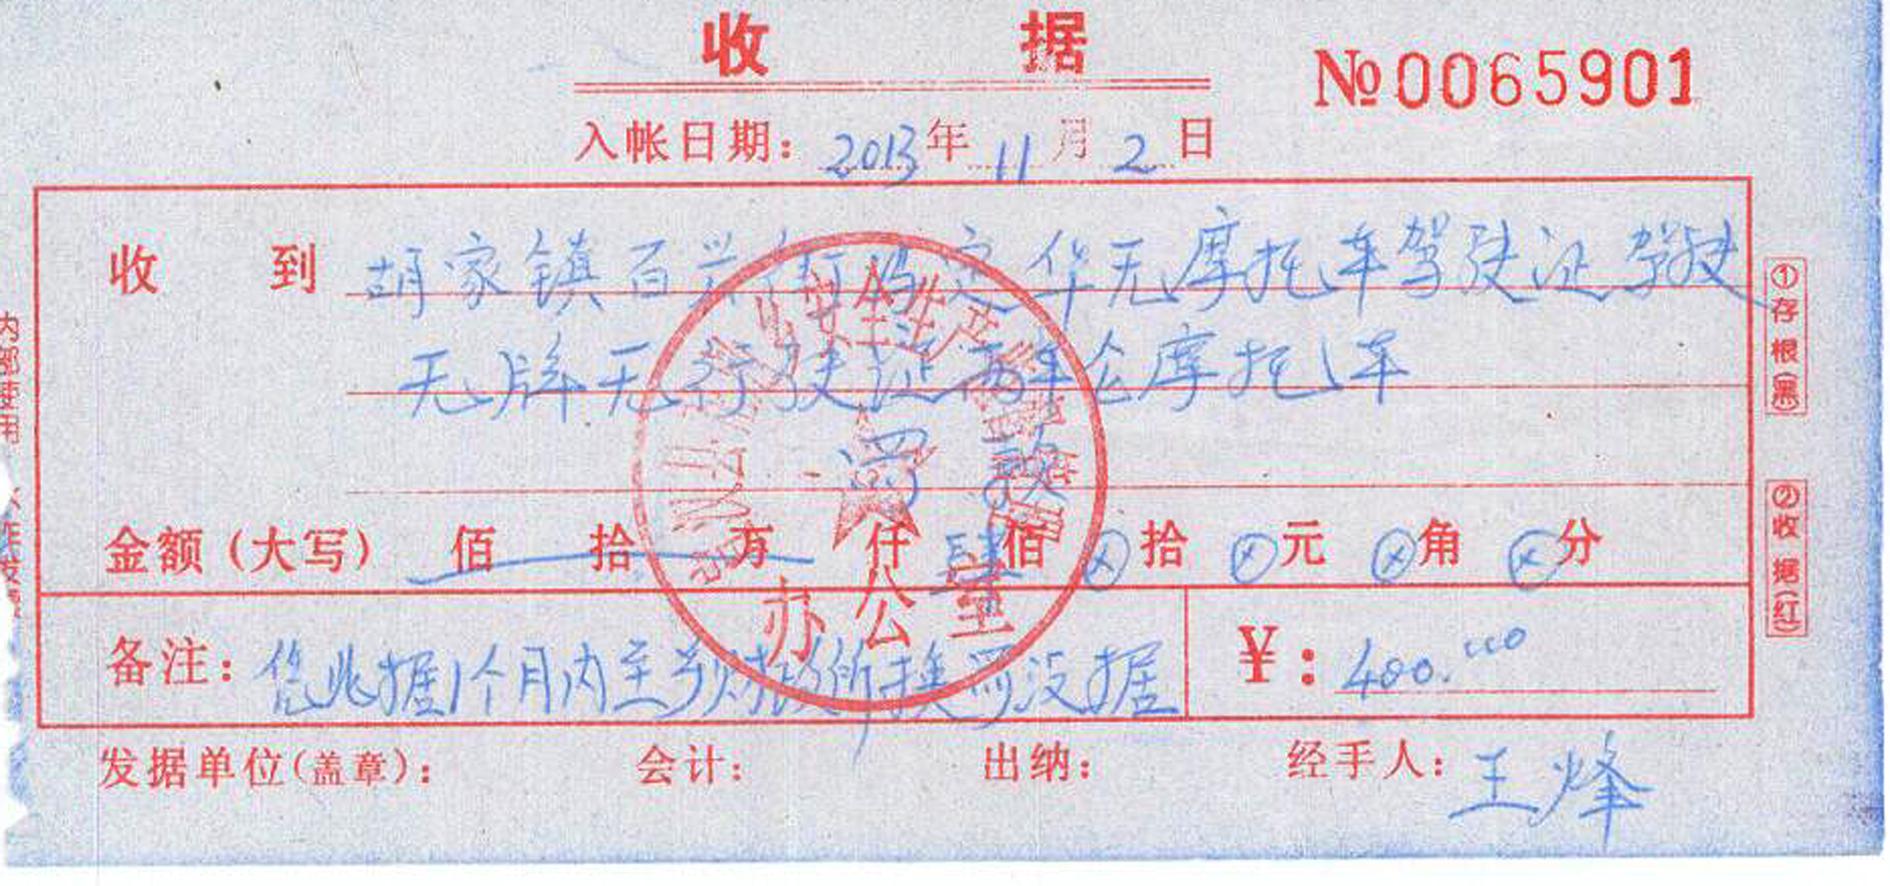 收 据
№0065901
入帐日期：2013年11月2日
收 到 胡家镇百兴 定华无摩托车驾驶证驾驶
无牌无行驶证两轮摩托车
罚 款
金额(大写) 佰 拾 万 仟 肆佰 ⊗拾 ⊗元 ⊗角 ⊗分
备注：凭此据1个月内至 财政所换罚没据
¥：400.00
发据单位(盖章)： 会计： 出纳： 经手人：王烽
①存根(黑)
②收据(红)
安全生产
办公室